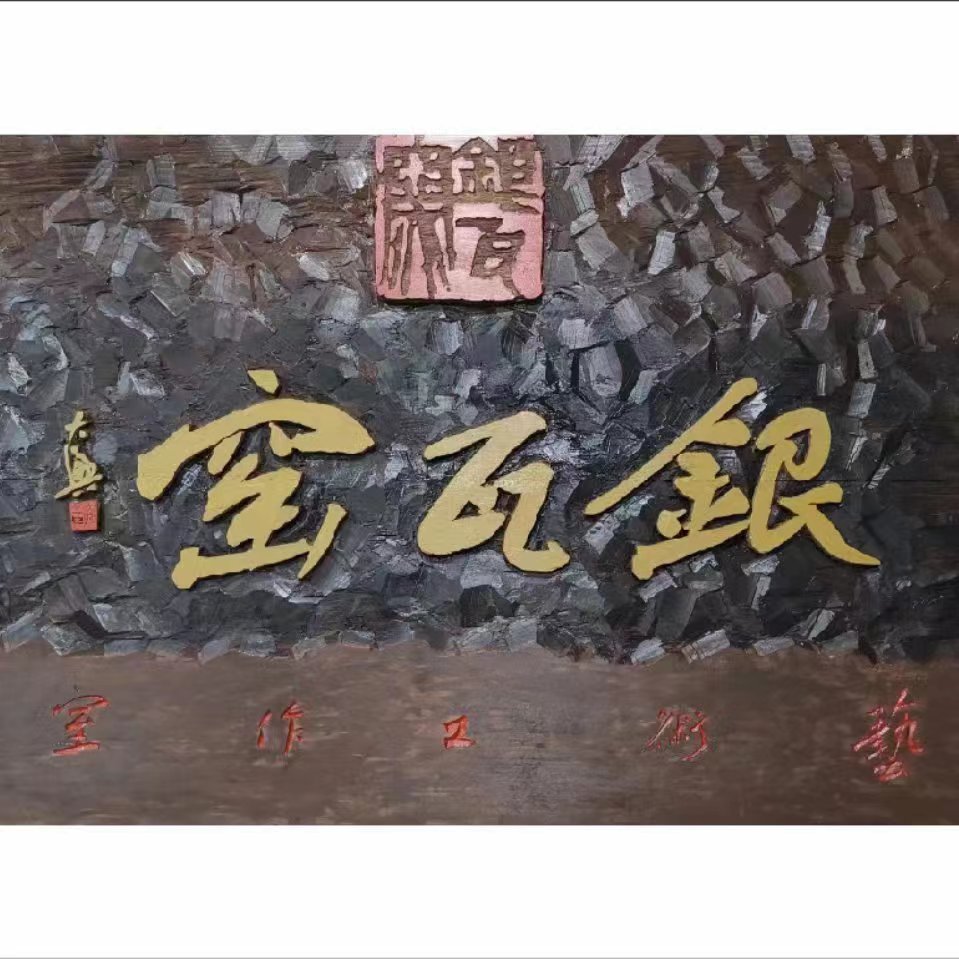 銀瓦窑
藝術工作室